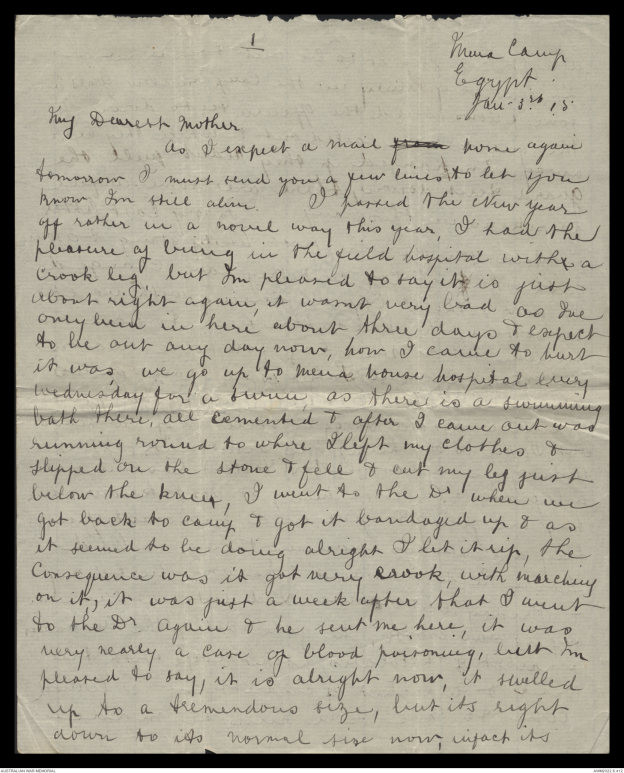 1
Mena Camp
Egypt
Jan 3rd 15
My Dearest Mother
As I expect a mail from home again
tomorrow I must send you a few lines to let you
know Im still alive. I passed the New Year
off rather in a novel way this year, I had the
pleasure of being in the field hospital with a
crook leg, but Im pleased to say it is just
about right again, it wasnt very bad as Ive
only been in here about three days & expect
to be out any day now, how I came to hurt
it was, we go up to Mena house hospital every
wednesday for a swim, as there is a swimming
bath there, all cemented & after I came out was
running round to where I left my clothes &
slipped on the stone & fell & cut my leg just
below the knee, I went to the Dr when we
got back to camp & got it bandaged up & as
it seemed to be doing alright I let it rip, the
Consequence was it got very crook, with marching
on it, it was just a week after that I went
to the Dr. again & he sent me here, it was
very nearly a case of blood poisoning, but Im
pleased to say, it is alright now, it swelled
up to a tremendous size, but its right
down to its normal size now, infact its
AUSTRALIAN WAR MEMORIAL